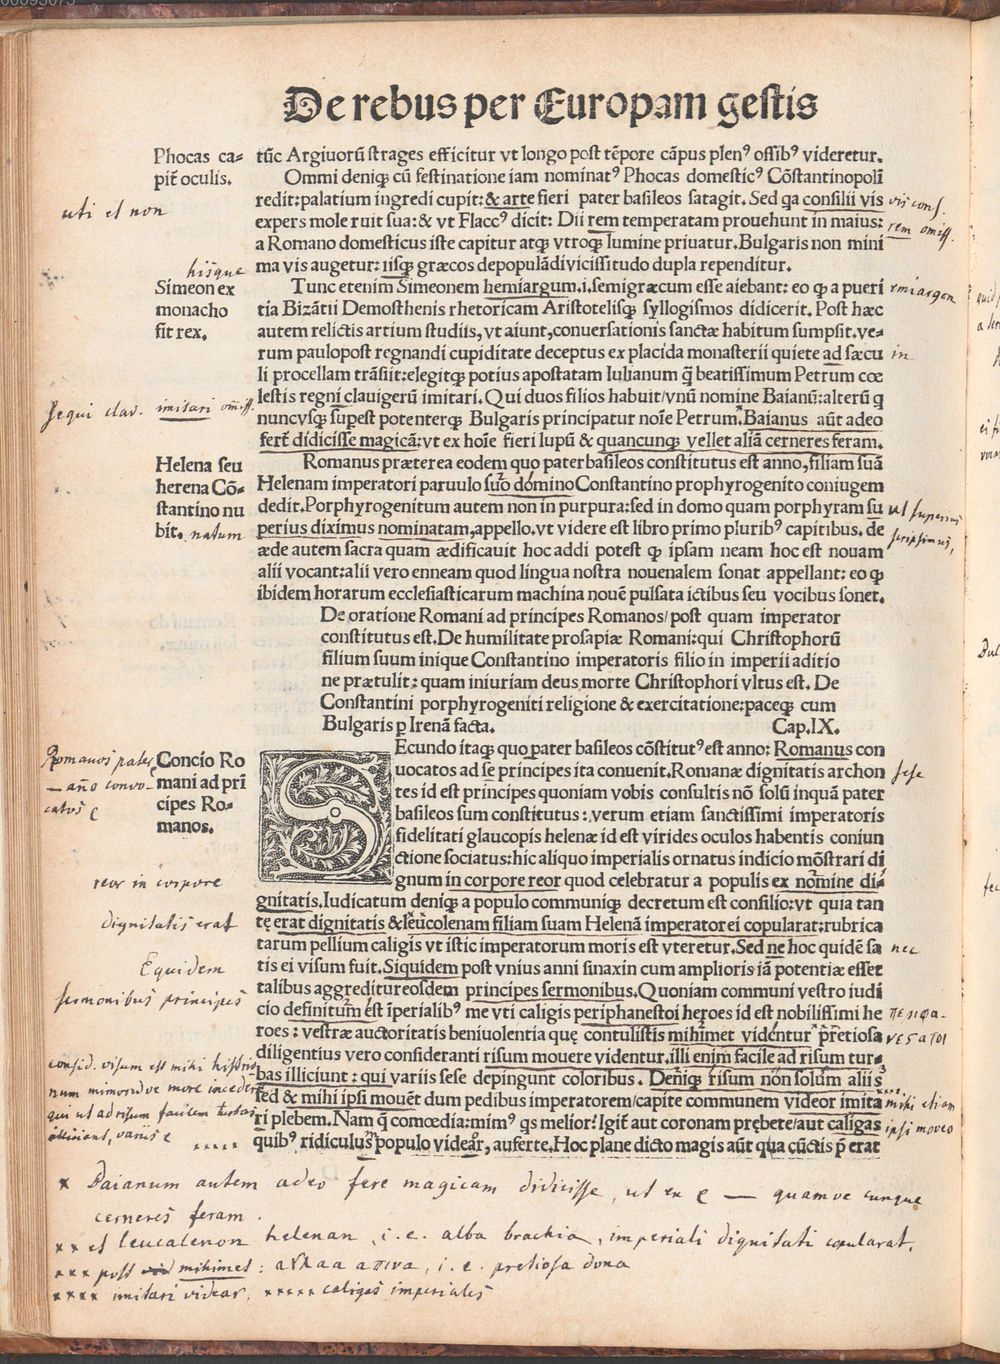 De rebus per Europam gestis
Phocas ca-
pit̄ oculis.
tūc Argiuorū strages efficitur vt longo post tēpore cāpus plenꝰ ossibꝰ videretur.
Ommi deniqꝫ cū festinatione iam nominatꝰ Phocas domesticꝰ Cōstantinopoli
redit:palatium ingredi cupit:& arte fieri pater basileos satagit. Sed qa consilii vis
expers mole ruit sua:& vt Flaccꝰ dicit: Dii rem temperatam prouehunt in maius:
a Romano domesticus iste capitur atqꝫ vtroqꝫ lumine priuatur.Bulgaris non mini
ma vis augetur: iisqꝫ græcos depopulādi vicissitudo dupla rependitur.
uti et non
vis cons.
rem omiss.
hisque
Simeon ex
monacho
fit rex.
Tunc etenim Simeonem hemiargum.i.semigræcum esse aiebant: eo qꝫ a pueri
tia Bizātii Demosthenis rhetoricam Aristotelisqꝫ syllogismos didicerit. Post hæc
autem relictis artium studiis,vt aiunt,conuersationis sanctæ habitum sumpsit.ve-
rum paulopost regnandi cupiditate deceptus ex placida monasterii quiete ad sæcu
li procellam trāsiit:elegitqꝫ potius apostatam Iulianum q̄ beatissimum Petrum cœ
lestis regni clauigerū imitari. Qui duos filios habuit/vnū nomine Baianū:alterū q
nuncvsqꝫ supest potenterqꝫ Bulgaris principatur noīe Petrum.Baianus aūt adeo
fert̄ didicisse magicā:vt ex hoīe fieri lupū & quancunqꝫ vellet aliā cerneres feram.
emiargon
in
sequi clav. imitari omiss.
Helena seu
herena Cō-
stantino nu
bit. natum
Romanus præterea eodem quo paterbasileos constitutus est anno,filiam suā
Helenam imperatori paruulo suo domino Constantino prophyrogenito coniugem
dedit.Porphyrogenitum autem non in purpura:sed in domo quam porphyram su
perius diximus nominatam,appello.vt videre est libro primo pluribꝰ capitibus. de
æde autem sacra quam ædificauit hoc addi potest qꝫ ipsam neam hoc est nouam
alii vocant:alii vero enneam quod lingua nostra nouenalem sonat appellant: eo qꝫ
ibidem horarum ecclesiasticarum machina nouē pulsata ictibus seu vocibus sonet.
ut superius
scripsimus,
De oratione Romani ad principes Romanos/post quam imperator
constitutus est.De humilitate prosapiæ Romani:qui Christophorū
filium suum inique Constantino imperatoris filio in imperii aditio
ne prætulit: quam iniuriam deus morte Christophori vltus est. De
Constantini porphyrogeniti religione & exercitatione:paceqꝫ cum
Bulgaris ꝑ Irenā facta. Cap.IX.
Concio Ro
mani ad pri
cipes Ro-
manos.
SEcundo itaqꝫ quo pater basileos cōstitutꝰ est anno: Romanus con
uocatos ad se principes ita conuenit.Romanæ dignitatis archon
tes id est principes quoniam vobis consultis nō solū inquā pater
basileos sum constitutus : verum etiam sanctissimi imperatoris
fidelitati glaucopis helenæ id est virides oculos habentis coniun
ctione sociatus:hic aliquo imperialis ornatus indicio mōstrari di
gnum in corpore reor quod celebratur a populis ex nomine di-
gnitatis.Iudicatum deniqꝫ a populo communiqꝫ decretum est consilio:vt quia tan
tę erat dignitatis & leucolenam filiam suam Helenā imperatori copularat:rubrica
tarum pellium caligis vt istic imperatorum moris est vteretur.Sed ne hoc quidē sa
tis ei visum fuit.Siquidem post vnius anni sinaxin cum amplioris iā potentiæ esset
talibus aggreditureosdem principes sermonibus.Quoniam communi vestro iudi
cio definitum est īperialibꝰ me vti caligis periphanestoi heroes id est nobilissimi he
roes : vestræ auctoritatis beniuolentia quę contulistis mihimet videntur pretiosa
diligentius vero consideranti risum mouere videntur.illi enim facile ad risum tur-
bas illiciunt : qui variis sese depingunt coloribus . Deniqꝫ risum non solum aliis
sed & mihi ipsi mouēt dum pedibus imperatorem/capite communem videor imita
ri plebem. Nam q̄ comœdia:mimꝰ qs melior! Igit̄ aut coronam prębete/aut caligas
quibꝰ ridiculus populo videar, auferte.Hoc plane dicto magis aūt qua cūctis ꝑ erat
Romanos pater
— año convo-
catos
sese
reor in corpore
dignitatis erat
nec
Equidem
sermonibus principes
περιφα-
νεςατοι
consid. visum est mihi histrio
num mimorumve more incedere
qui ut ad risum facilem turbas
alliciant, variis
mihi etiam
ipsi moveo
× Baianum autem adeo fere magicam didicisse, ut ex — quamve cunque
cerneres feram.
×× et leucolenon helenan, i.e. alba brachia, imperiali dignitati copularat.
××× post mihimet : αγλαα απινα, i.e. pretiosa dona
×××× imitari videar, ××××× caligas imperiales